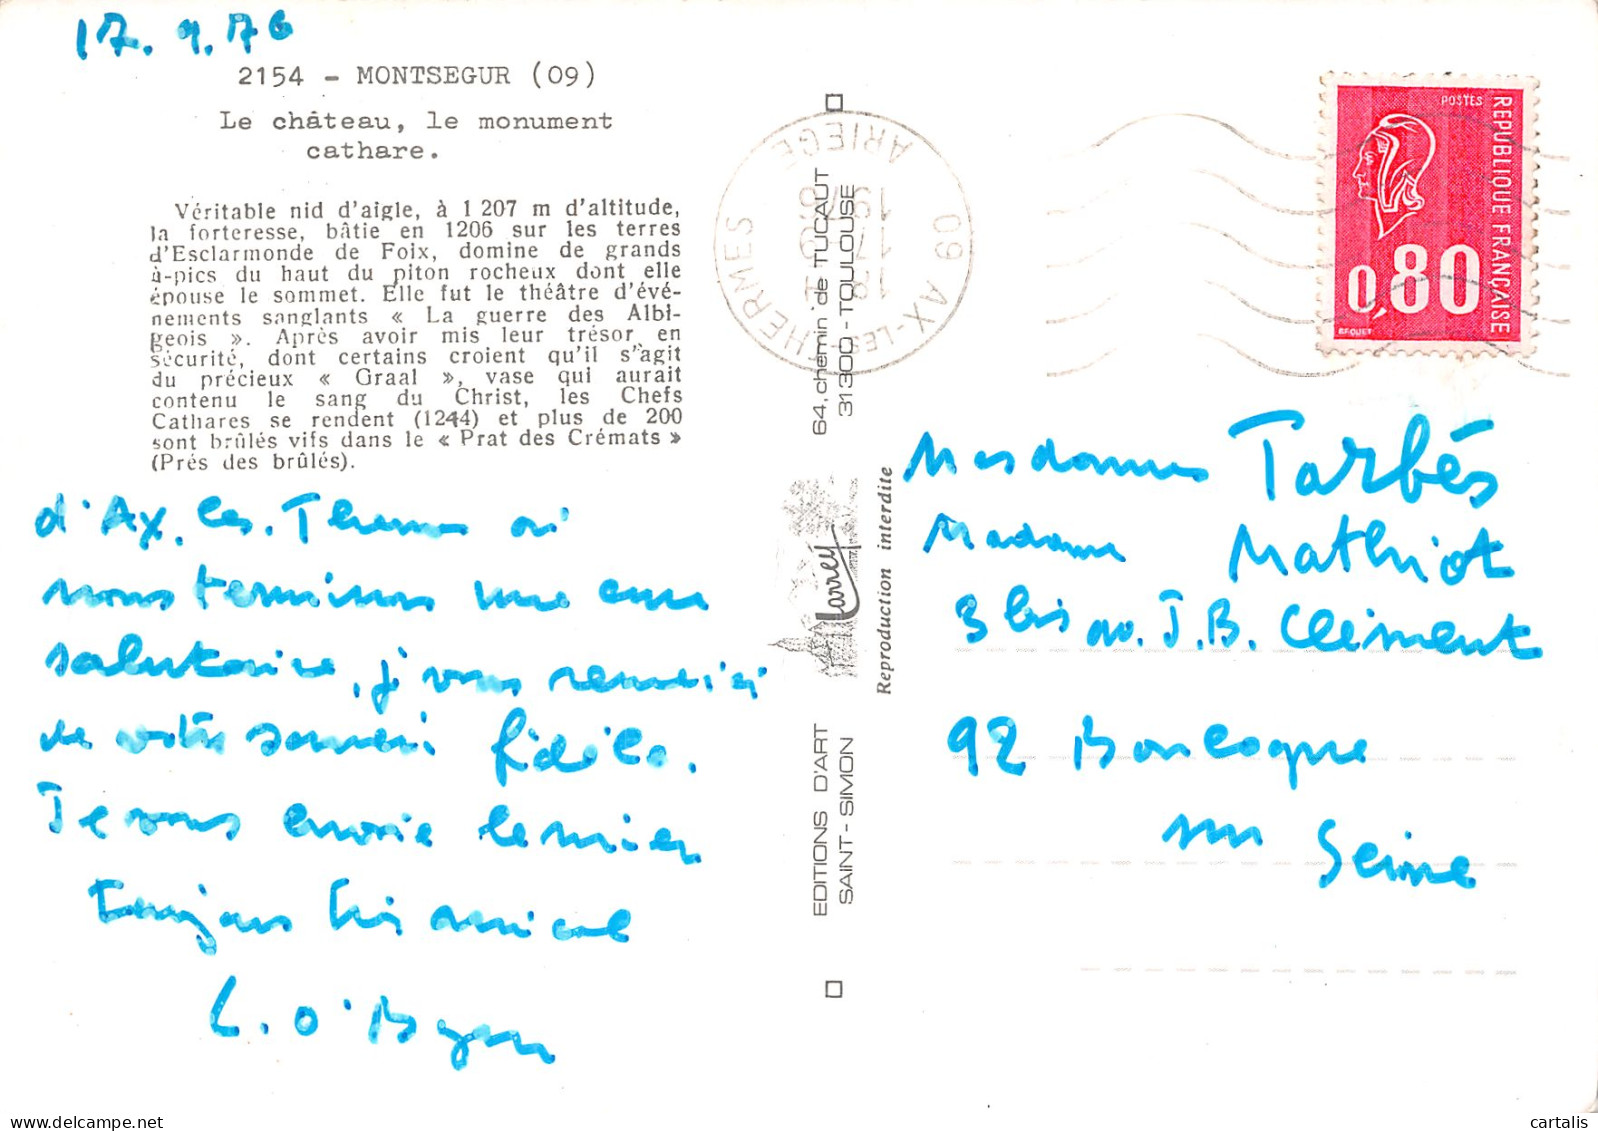 17.9.76
2154 - MONTSEGUR (09)
Le château, le monument
cathare.
Véritable nid d'aigle, à 1 207 m d'altitude,
la forteresse, bâtie en 1206 sur les terres
d'Esclarmonde de Foix, domine de grands
à-pics du haut du piton rocheux dont elle
épouse le sommet. Elle fut le théâtre d'évé-
nements sanglants « La guerre des Albi-
geois ». Après avoir mis leur trésor en
sécurité, dont certains croient qu'il s'agit
du précieux « Graal », vase qui aurait
contenu le sang du Christ, les Chefs
Cathares se rendent (1244) et plus de 200
sont brûlés vifs dans le « Prat des Crémats »
(Prés des brûlés).
d'Ax. les. Thermes où
nous terminons une cure
salutaire, je vous remercie
de votre souvenir fidèle.
Je vous envoie le mien
toujours très amical
L. O'Byrn
EDITIONS D'ART
SAINT-SIMON
64, chemin de TUCAUT
31300 - TOULOUSE
Larrey
Reproduction interdite
09 AX-LES-THERMES
ARIEGE
18
17-9
19
POSTES
REPUBLIQUE FRANÇAISE
0,80
BEQUET
Mesdames Tarbés
Madame Mathiot
3 bis av. J.B. Clément
92 Boulogne
sur Seine
cartalis